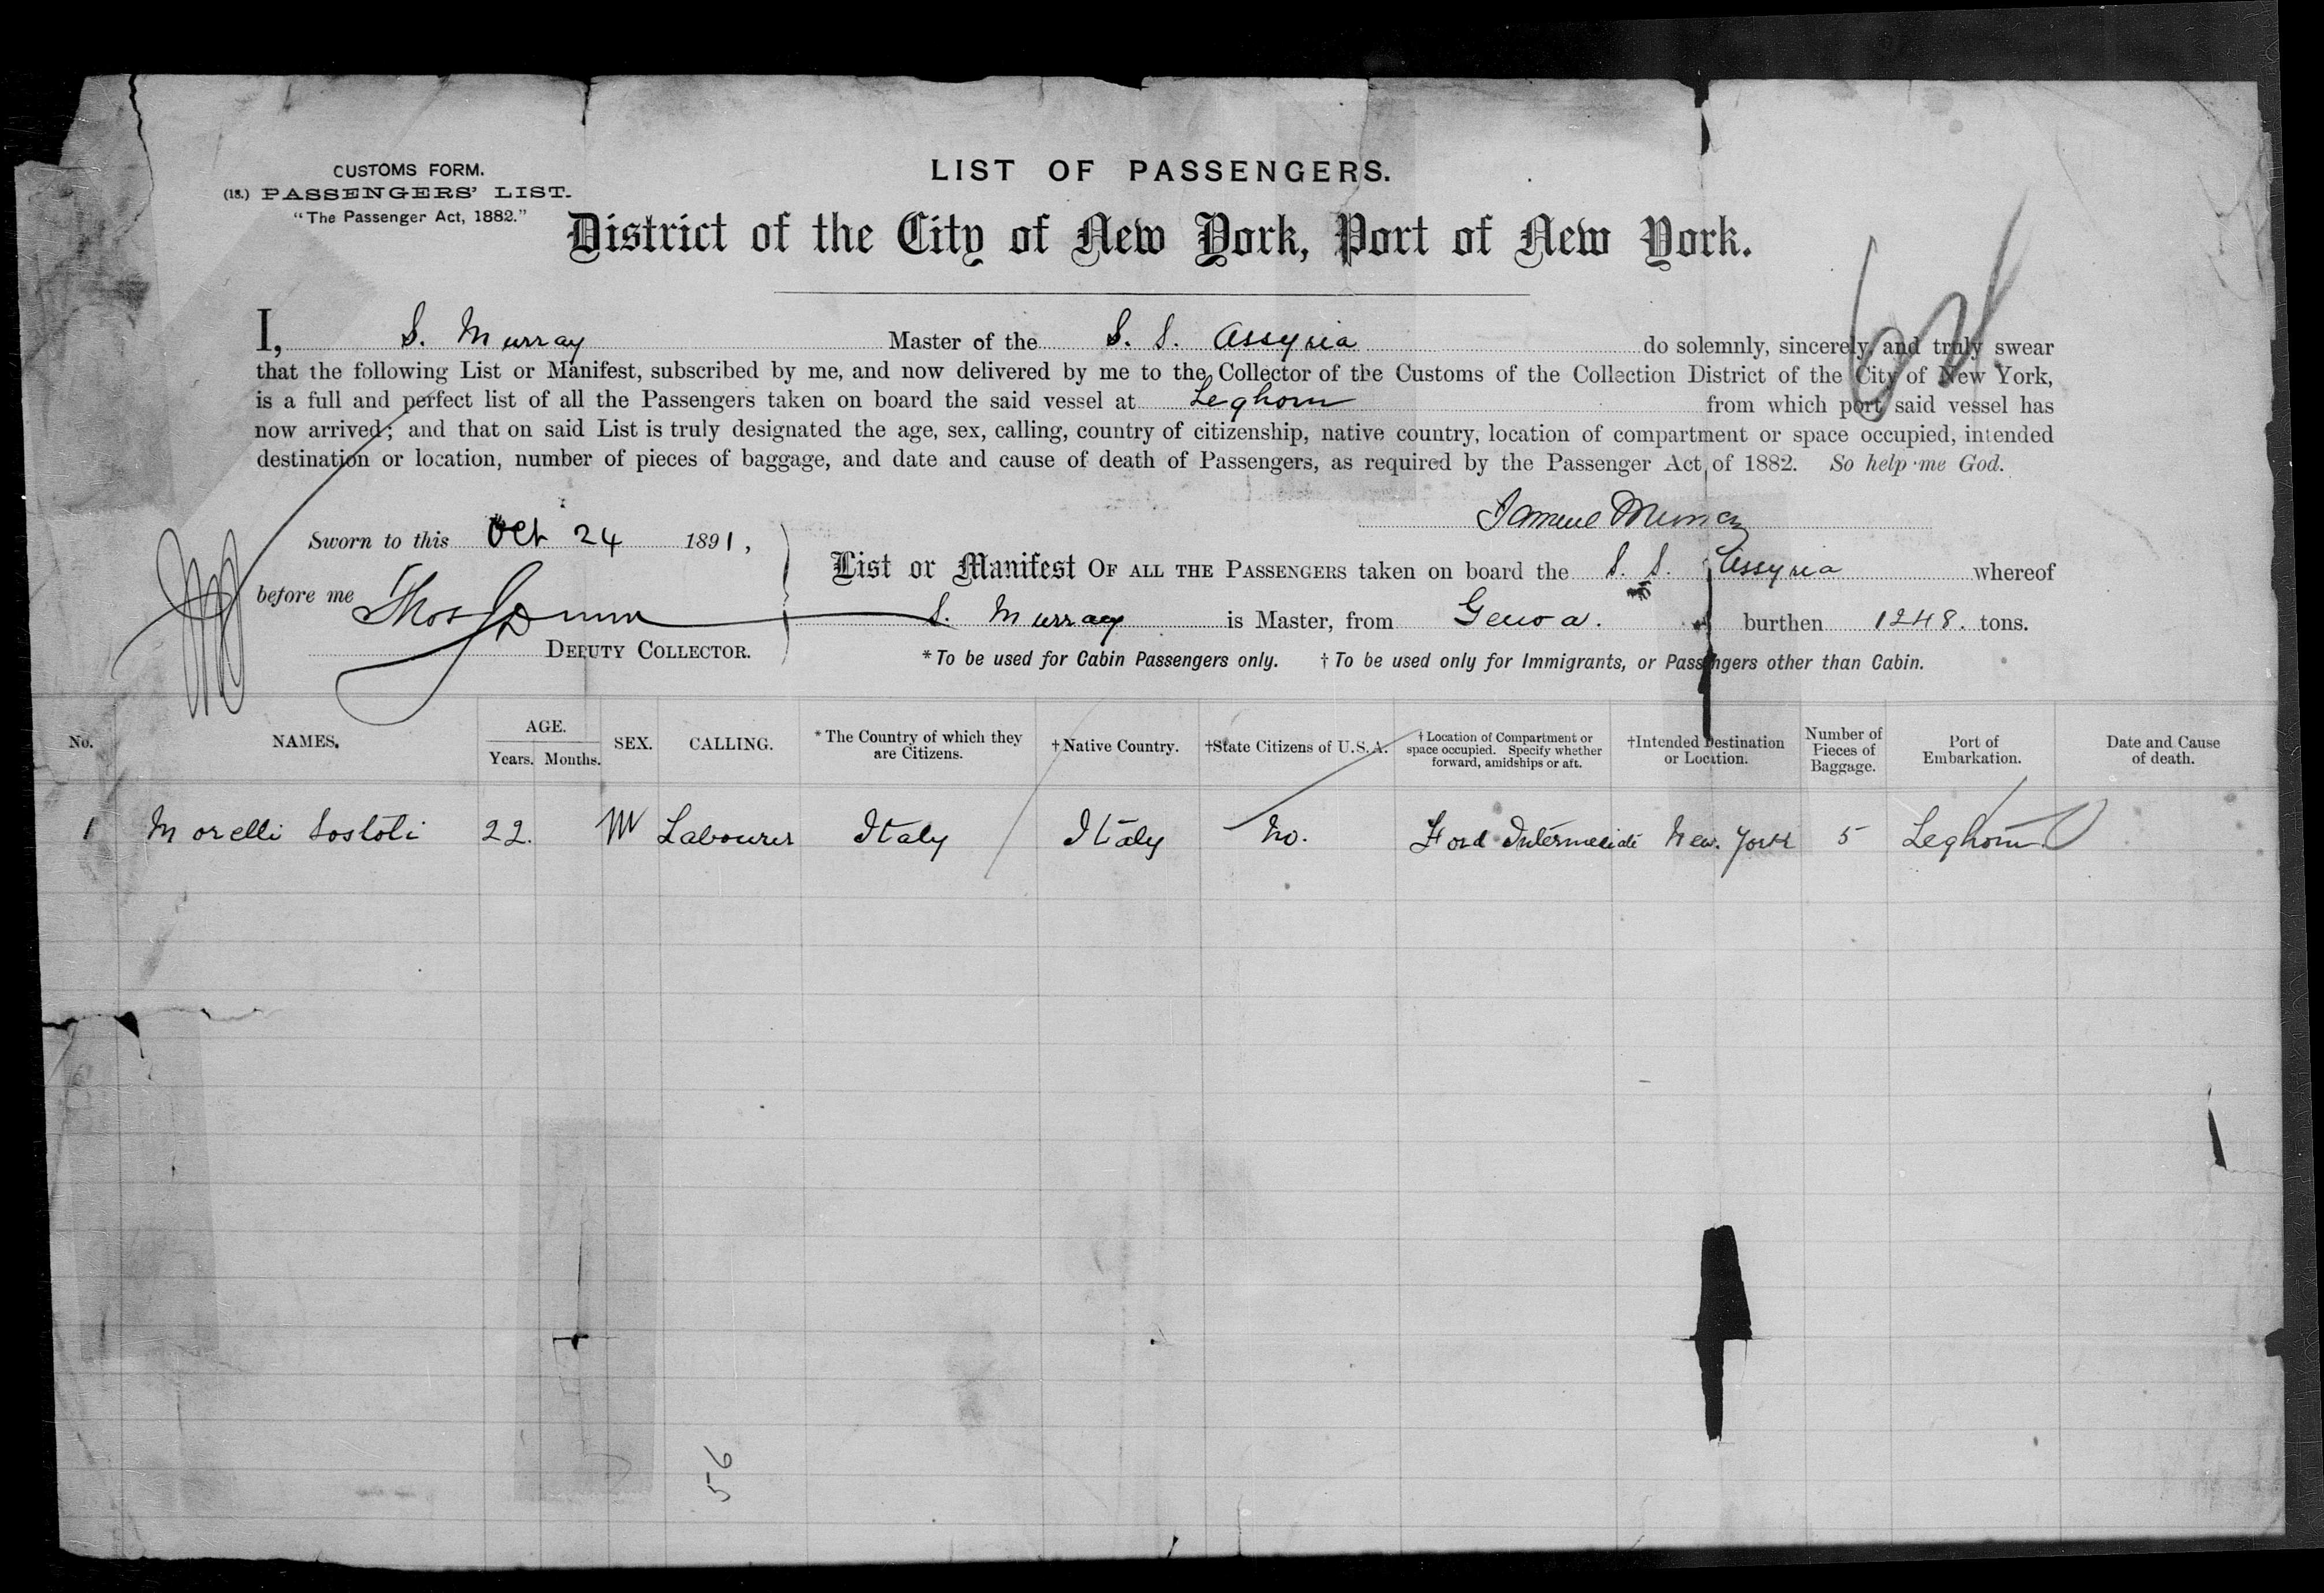 CUSTOMS FORM.
(18.) PASSENGERS' LIST.
"The Passenger Act, 1882."
LIST OF PASSENGERS.
District of the City of New York, Port of New York.
I, S. Murray Master of the S. S. Assyria do solemnly, sincerely, and truly swear
that the following List or Manifest, subscribed by me, and now delivered by me to the Collector of the Customs of the Collection District of the City of New York,
is a full and perfect list of all the Passengers taken on board the said vessel at Leghorn from which port said vessel has
now arrived; and that on said List is truly designated the age, sex, calling, country of citizenship, native country, location of compartment or space occupied, intended
destination or location, number of pieces of baggage, and date and cause of death of Passengers, as required by the Passenger Act of 1882. So help me God.
Samuel Murray
Sworn to this Oct 24 1891,
before me Thos Dunn
DEPUTY COLLECTOR.
List or Manifest OF ALL THE PASSENGERS taken on board the S. S. Assyria whereof
S. Murray is Master, from Genoa. burthen 1248. tons.
* To be used for Cabin Passengers only. † To be used only for Immigrants, or Passengers other than Cabin.
No. NAMES. AGE. Years. Months. SEX. CALLING. * The Country of which they are Citizens. † Native Country. †State Citizens of U.S.A. † Location of Compartment or space occupied. Specify whether forward, amidships or aft. †Intended Destination or Location. Number of Pieces of Baggage. Port of Embarkation. Date and Cause of death.
1 Morelli Sostoti 22. M Labourer Italy Italy No. Ford Intermediate New York 5 Leghorn
56